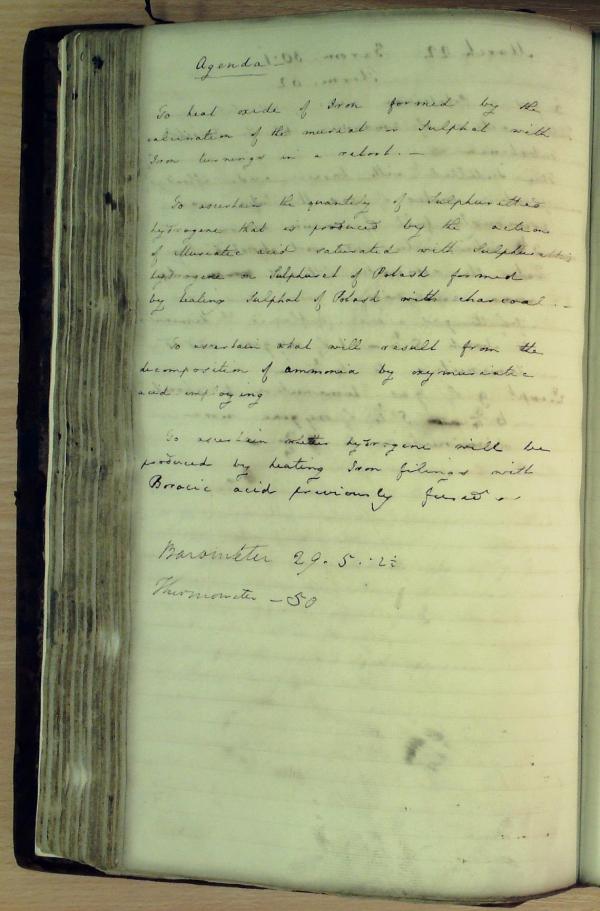 Agenda
To heat oxide of Iron formed by the
calcination of the muriat or Sulphat with
Iron turnings in a retort. —
To ascertain the quantity of Sulphuretted
hydrogene that is produced by the action
of Muriatic acid saturated with Sulphuretted
hydrogene on Sulphuret of Potash formed
by heating Sulphat of Potash with charcoal. —
To ascertain what will result from the
decomposition of ammonia by oxymuriatic
acid employing
To ascertain whether hydrogene will be
produced by heating Iron filings with
Boracic acid previously fused. —
Barometer 29. 5.
Thermometer — 50